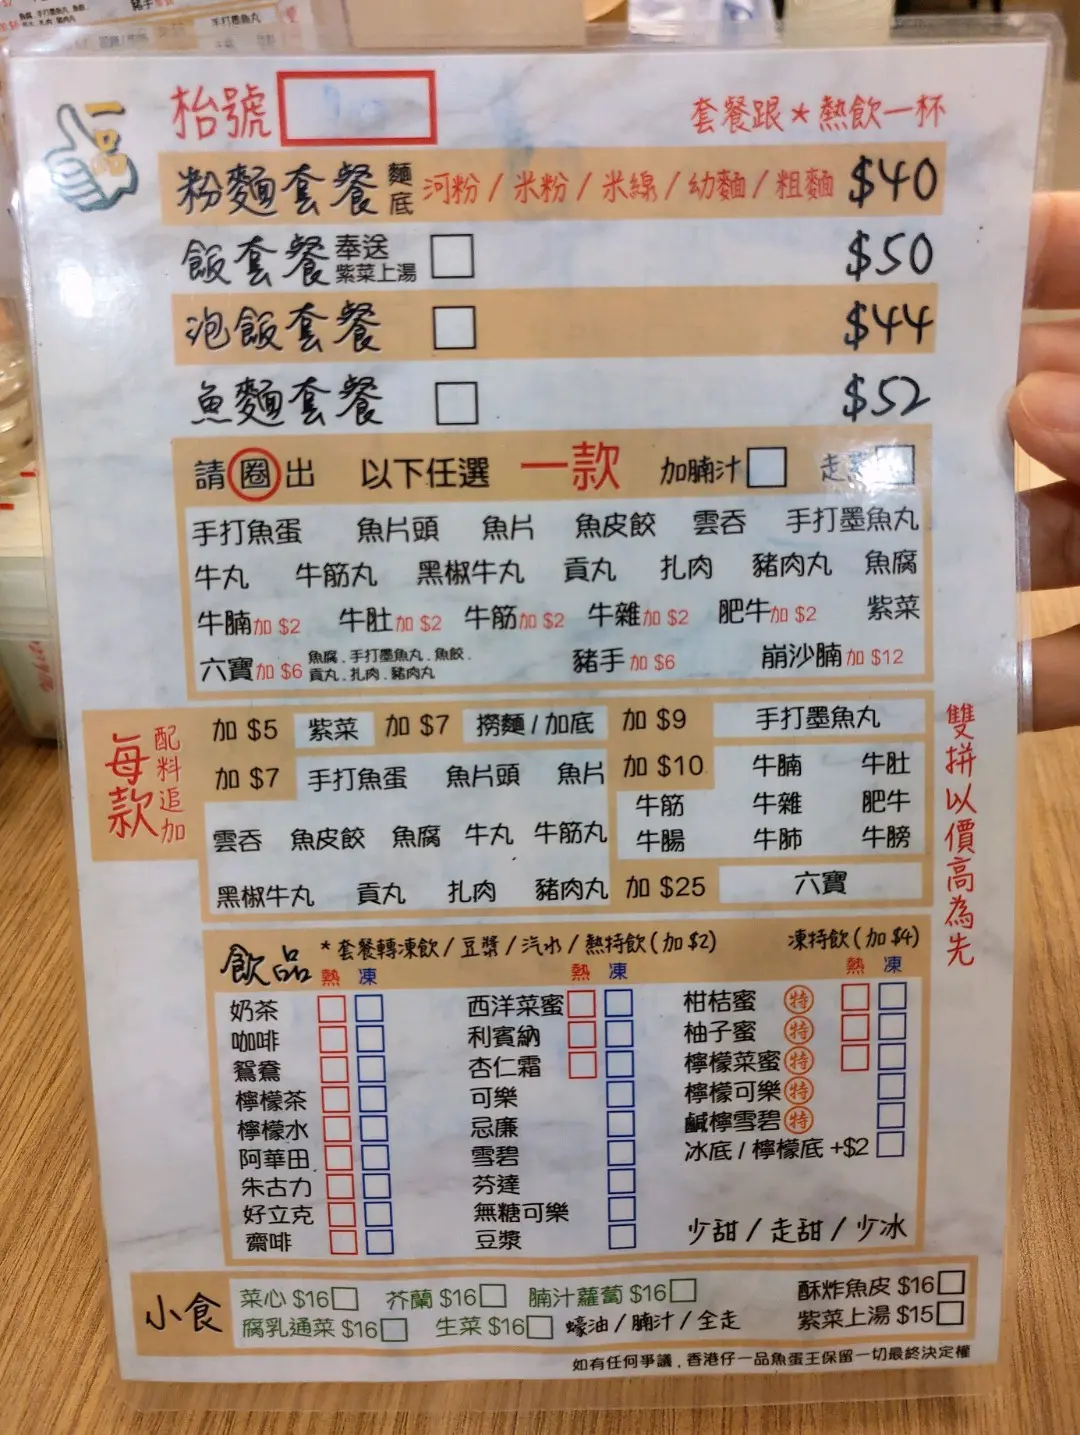 一品
枱號
套餐跟*熱飲一杯
粉麵套餐 麵底 河粉 / 米粉 / 米線 / 幼麵 / 粗麵 $40
飯套餐 奉送紫菜上湯 $50
泡飯套餐 $44
魚麵套餐 $52
請圈出 以下任選 一款 加腩汁 走
手打魚蛋 魚片頭 魚片 魚皮餃 雲吞 手打墨魚丸
牛丸 牛筋丸 黑椒牛丸 貢丸 扎肉 豬肉丸 魚腐
牛腩加 $2 牛肚加 $2 牛筋加 $2 牛雜加 $2 肥牛加 $2 紫菜
六寶加 $6 魚腐.手打墨魚丸.魚餃.
貢丸.扎肉.豬肉丸
豬手加 $6 崩沙腩加 $12
每款
配料追加
加 $5 紫菜 加 $7 撈麵 / 加底 加 $9 手打墨魚丸
加 $7 手打魚蛋 魚片頭 魚片
雲吞 魚皮餃 魚腐 牛丸 牛筋丸
黑椒牛丸 貢丸 扎肉 豬肉丸
加 $10 牛腩 牛肚
牛筋 牛雜 肥牛
牛腸 牛肺 牛膀
加 $25 六寶
雙拼以價高為先
飲品 *套餐轉凍飲 / 豆漿 / 汽水 / 熱特飲(加 $2) 凍特飲(加 $4)
熱 凍 熱 凍 熱 凍
奶茶 西洋菜蜜 柑桔蜜 特
咖啡 利賓納 柚子蜜 特
鴛鴦 杏仁霜 檸檬菜蜜 特
檸檬茶 可樂 檸檬可樂 特
檸檬水 忌廉 鹹檸雪碧 特
阿華田 雪碧 冰底 / 檸檬底 +$2
朱古力 芬達
好立克 無糖可樂 少甜 / 走甜 / 少冰
齋啡 豆漿
小食
菜心 $16 芥蘭 $16 腩汁蘿蔔 $16 酥炸魚皮 $16
腐乳通菜 $16 生菜 $16 蠔油 / 腩汁 / 全走 紫菜上湯 $15
如有任何爭議，香港仔一品魚蛋王保留一切最終決定權